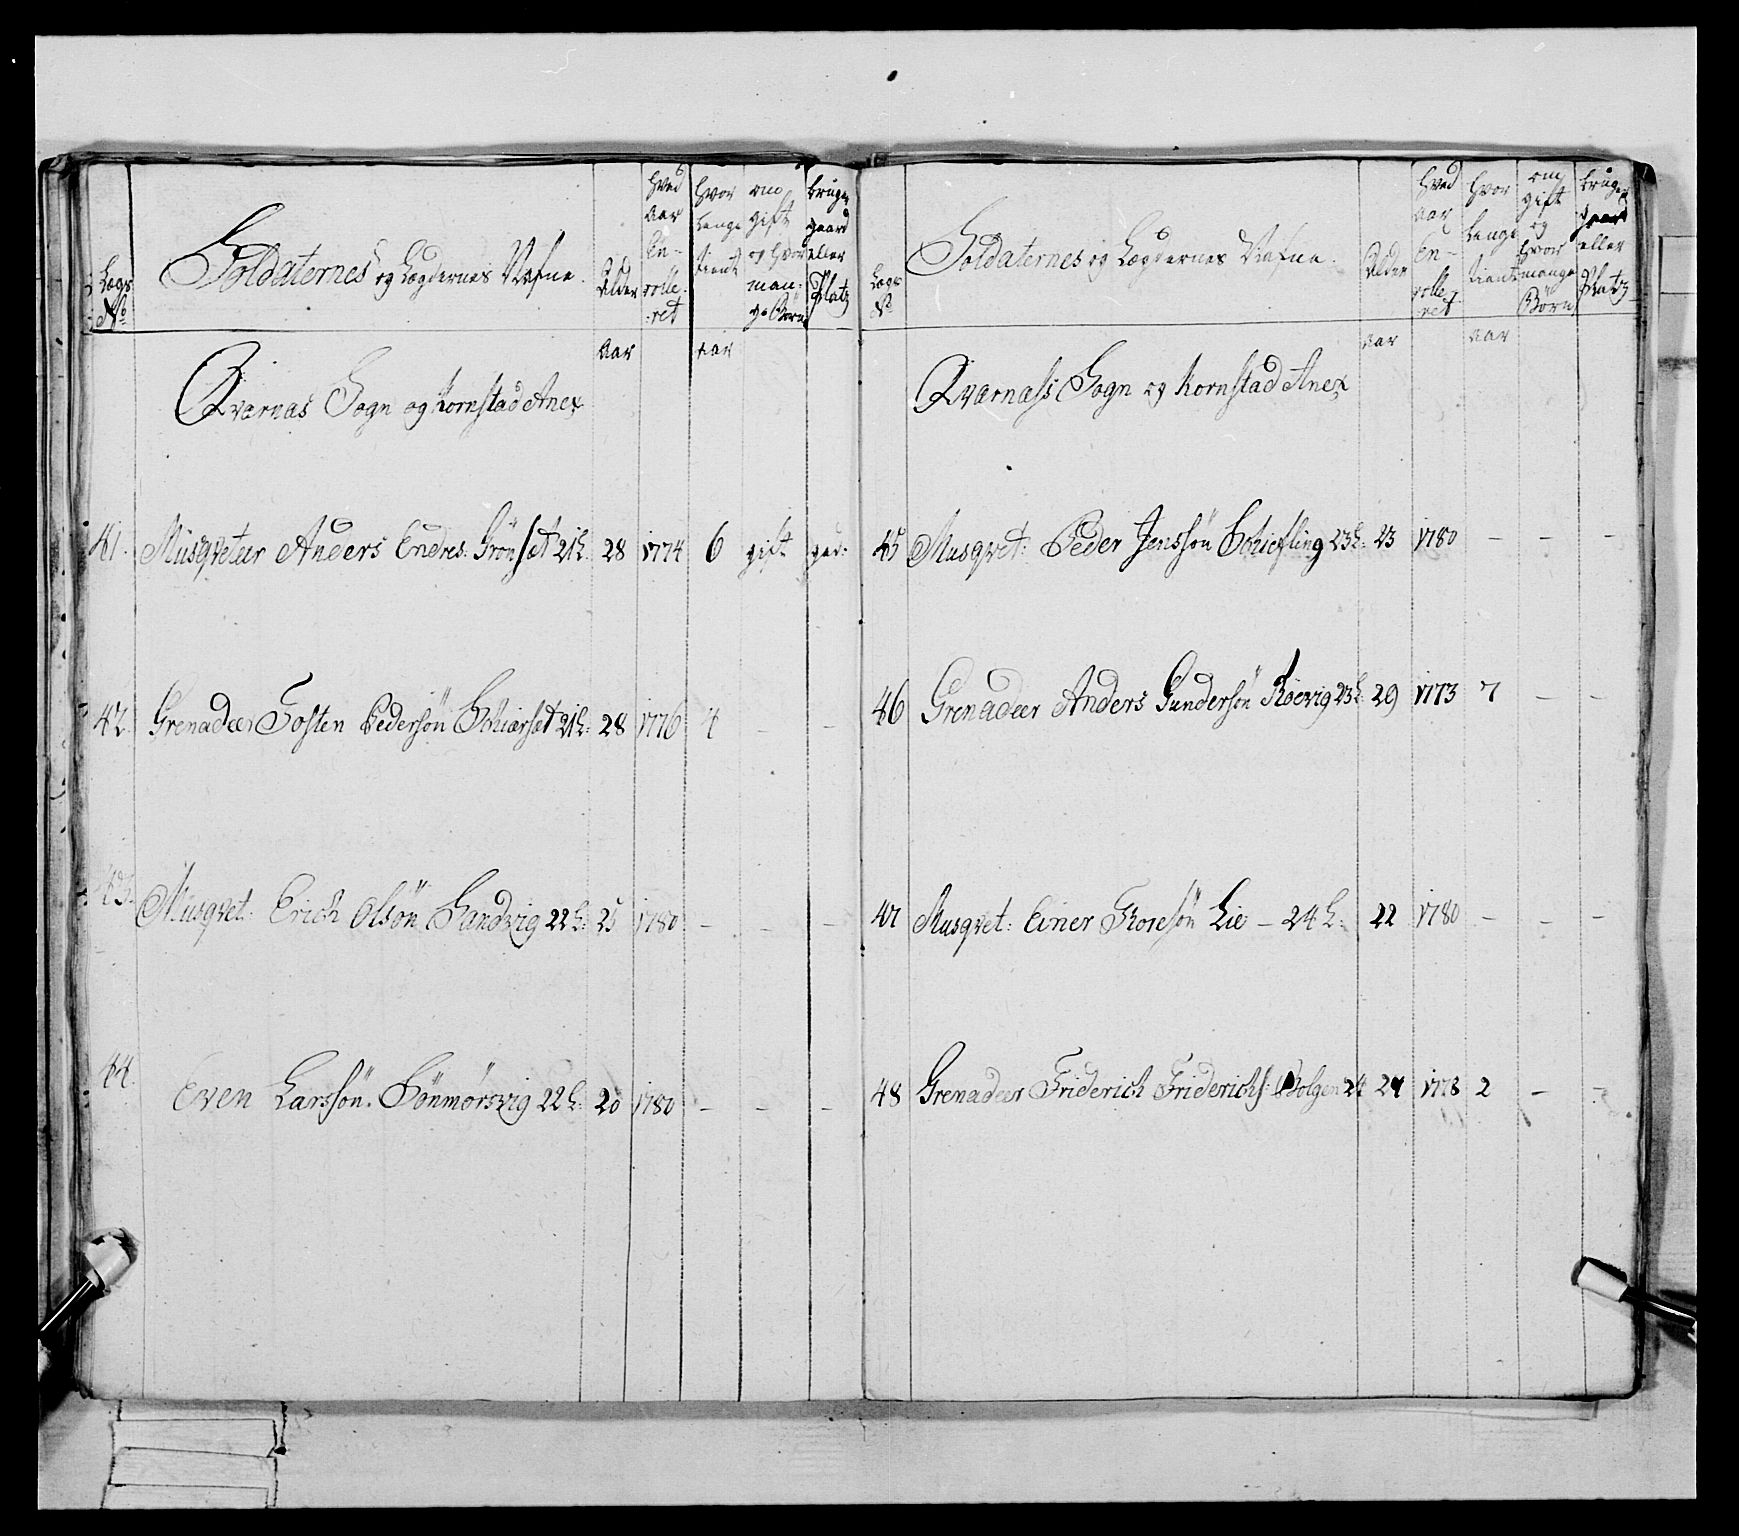 Lægs
No
Soldaternes og Lægdernes Nafne.
Alder
Hvad
Aar
En-
rolle-
ret
Hvor
Lenge
tient
om
gift
og hvor
man-
ge Børn
bruger
gaard
eller
Platz
Aar
Aar
Qvarnæs Sogn og Kornstad Anex
41. Musqveteer Anders Endres: Grönset 21 L: 28 1774 6 gift gad:
42. Grenadeer Tosten Pedersön Schiærset 21 L: 28 1776 4 - -
43. Musqvet: Erich Olsön Sandvig 22 L: 25 1780 - - -
44. Even Larssön. Sönmörsvig 22 L: 20 1780 - - -
Lægs
No
Soldaternes og Lægdernes Nafne.
Alder
Hvad
Aar
En-
rolle-
ret
Hvor
Lenge
tient
om
gift
og
hvor
mange
Börn
bruger
gaard
eller
Platz
Aar
Aar
Qværnæss Sogn og Kornstad Anex
45 Musqvet: Peder Jenssön Schiefling 23 L: 23 1780 - - -
46 Grenadeer Anders Gundersön Röevig 23 L: 29 1773 7 - -
47 Musqvet: Einer Thoresön Lie - 24 L: 22 1780 - - -
48 Grenadeer Friderich Friderichs: Bolgen 24 24 1778 2 - -